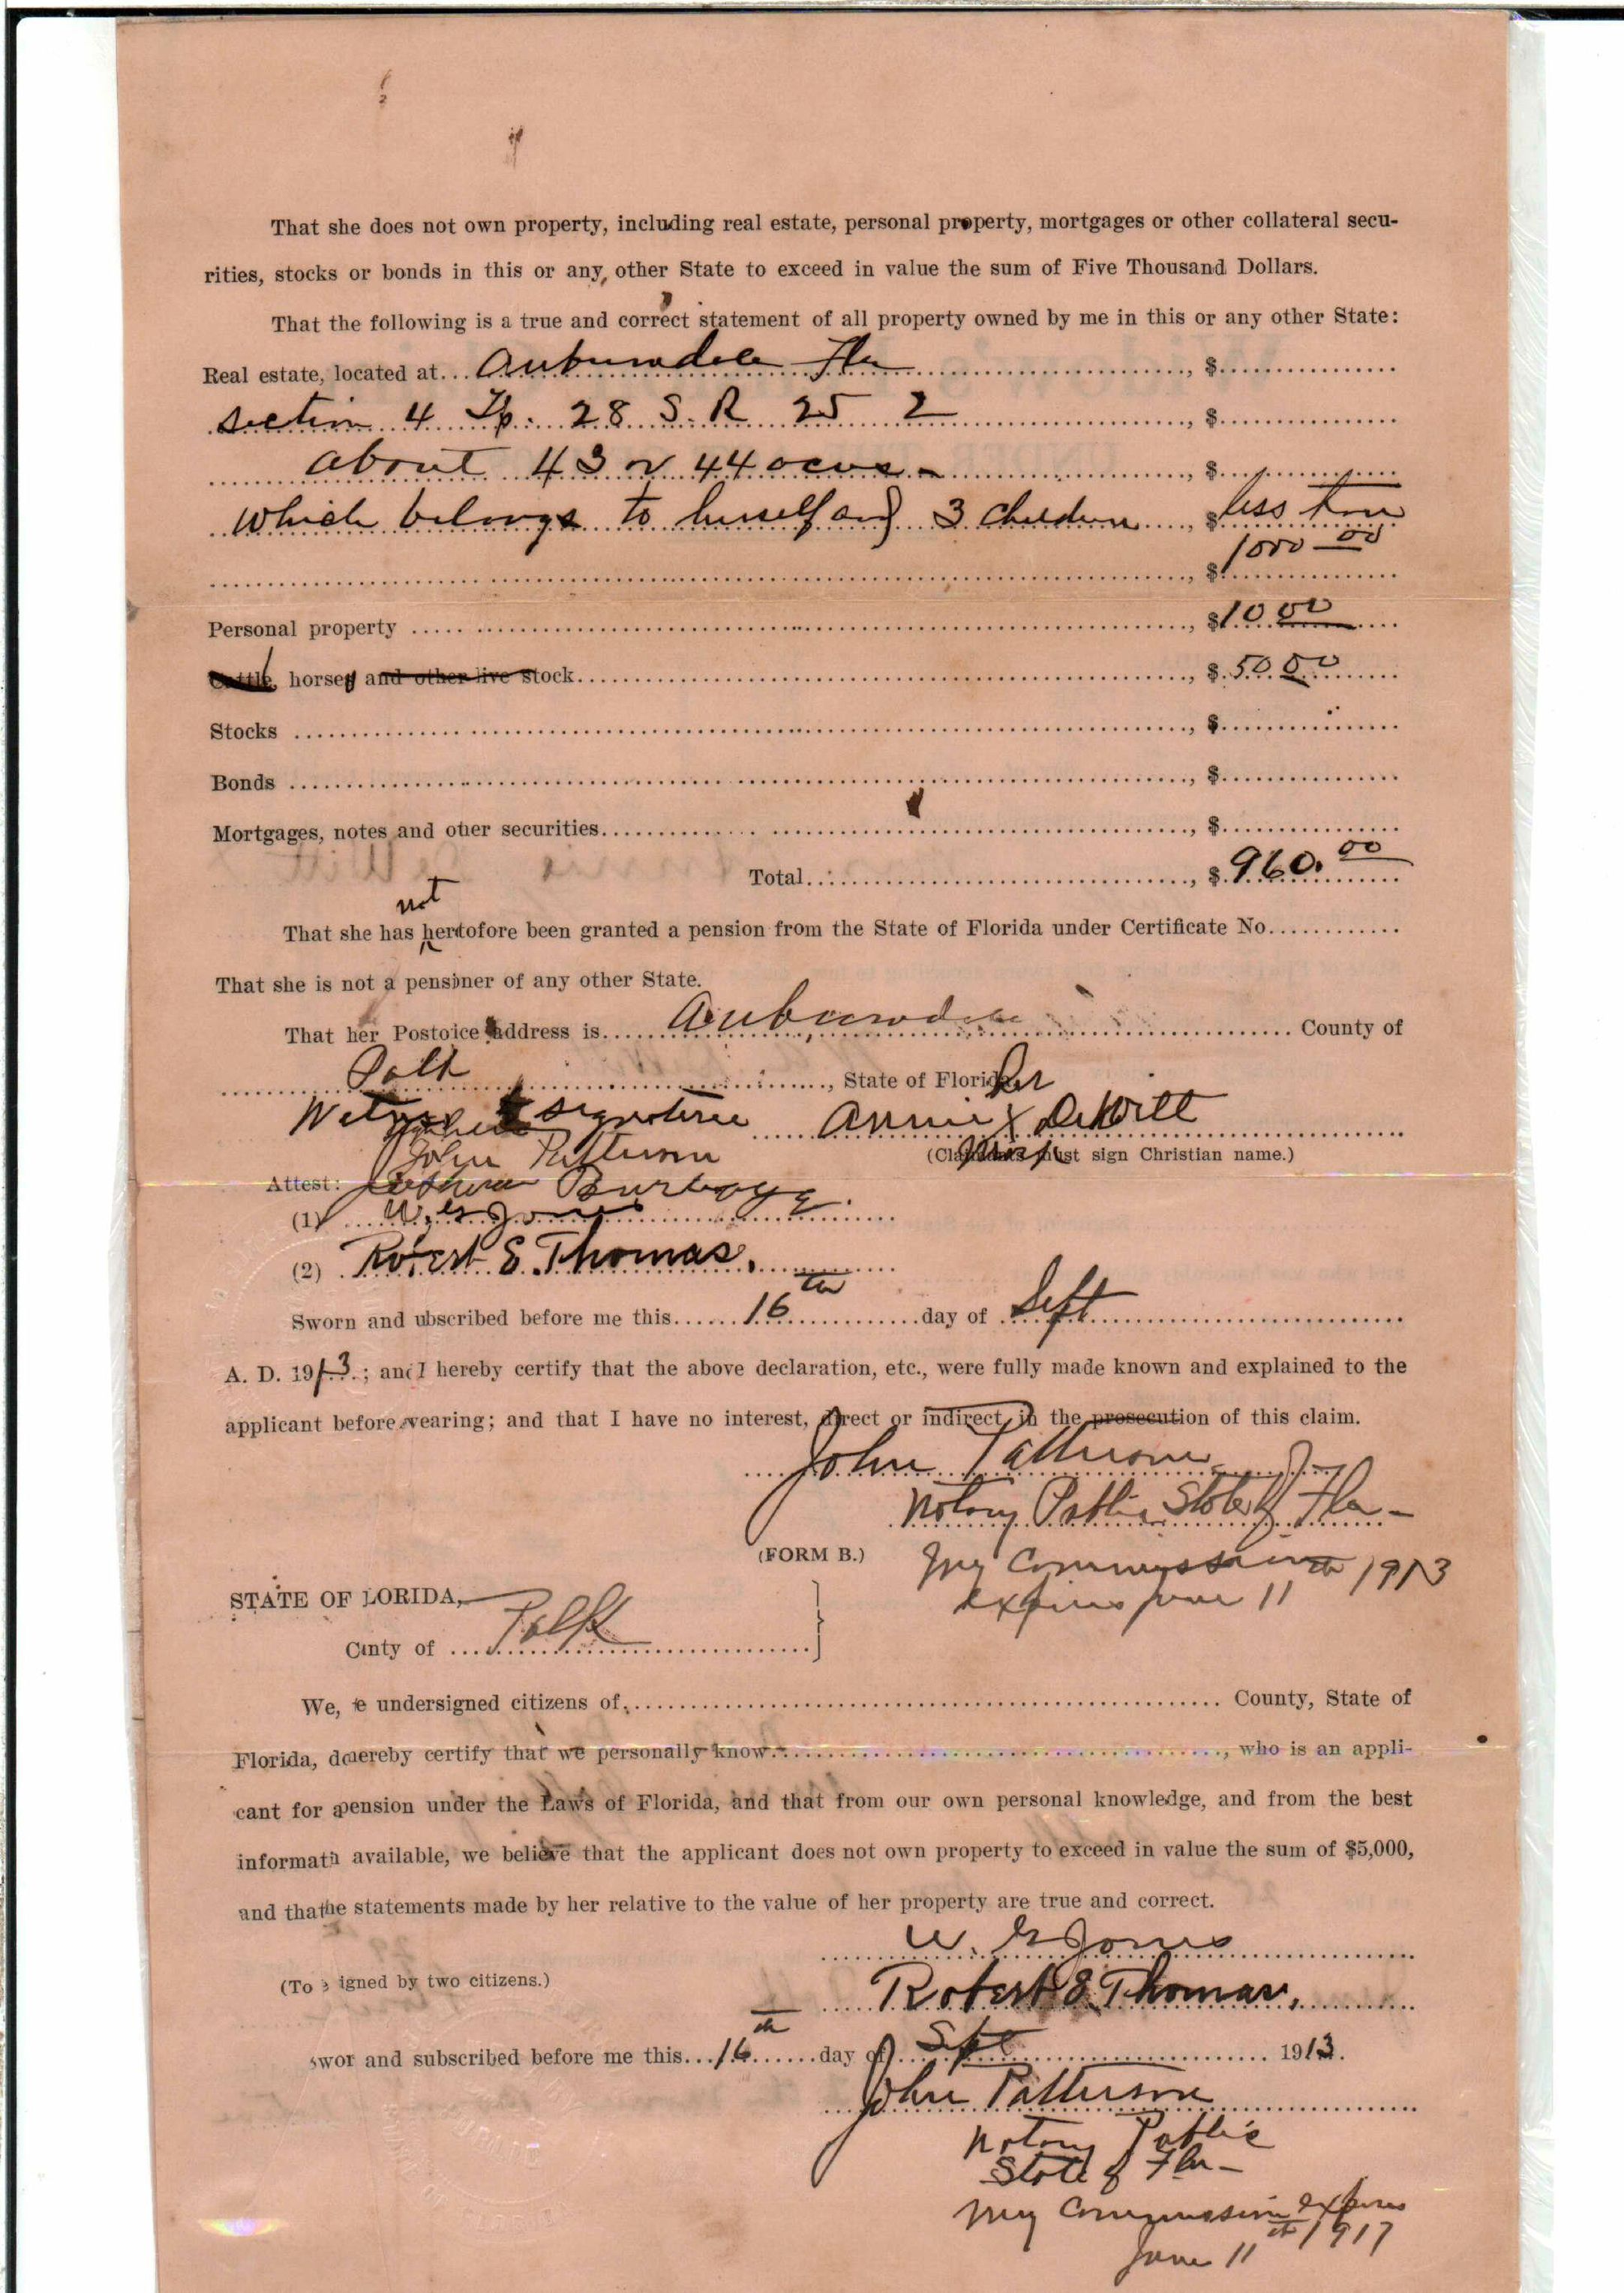 That she does not own property, including real estate, personal property, mortgages or other collateral secu-
rities, stocks or bonds in this or any other State to exceed in value the sum of Five Thousand Dollars.
That the following is a true and correct statement of all property owned by me in this or any other State:
Real estate, located at... Auburndale Fla ..., $
section 4 Tp. 28 S. R 25 ..., $
about 43 or 44 acres - ..., $
which belongs to herself and 3 children ..., $ less than
..., $ 1000 00
Personal property ..., $10 00
Cattle, horses and other live stock..., $ 50 00
Stocks ..., $
Bonds ..., $
Mortgages, notes and other securities..., $
Total..., $ 960. 00
not
That she has heretofore been granted a pension from the State of Florida under Certificate No............
That she is not a pensiner of any other State.
That her Postoice address is... Auburndale ... County of
Polk ..., State of Florida. Her
Witness to signature Annie X DeWitt
mark
(Claimants must sign Christian name.)
John Patterson
Attest: Burbage.
(1) W. G Jones
(2) Robert E. Thomas.
Sworn and ubscribed before me this... 16th ...day of Sept
A. D. 1913; and I hereby certify that the above declaration, etc., were fully made known and explained to the
applicant before wearing; and that I have no interest, direct or indirect, in the prosecution of this claim.
John Patterson
Notary Public State of Fla -
(FORM B.)
My Commission
expires June 11th 1913
STATE OF LORIDA,
Cunty of ... Polk
We, e undersigned citizens of... County, State of
Florida, do hereby certify that we personally know..., who is an appli-
cant for a pension under the Laws of Florida, and that from our own personal knowledge, and from the best
informatn available, we believe that the applicant does not own property to exceed in value the sum of $5,000,
and that the statements made by her relative to the value of her property are true and correct.
W. G Jones
(To signed by two citizens.)
Robert E. Thomas.
swor and subscribed before me this...16th...day of... Sept ... 1913.
John Patterson
Notary Public
State of Fla -
My Commission expires
June 11th 1917